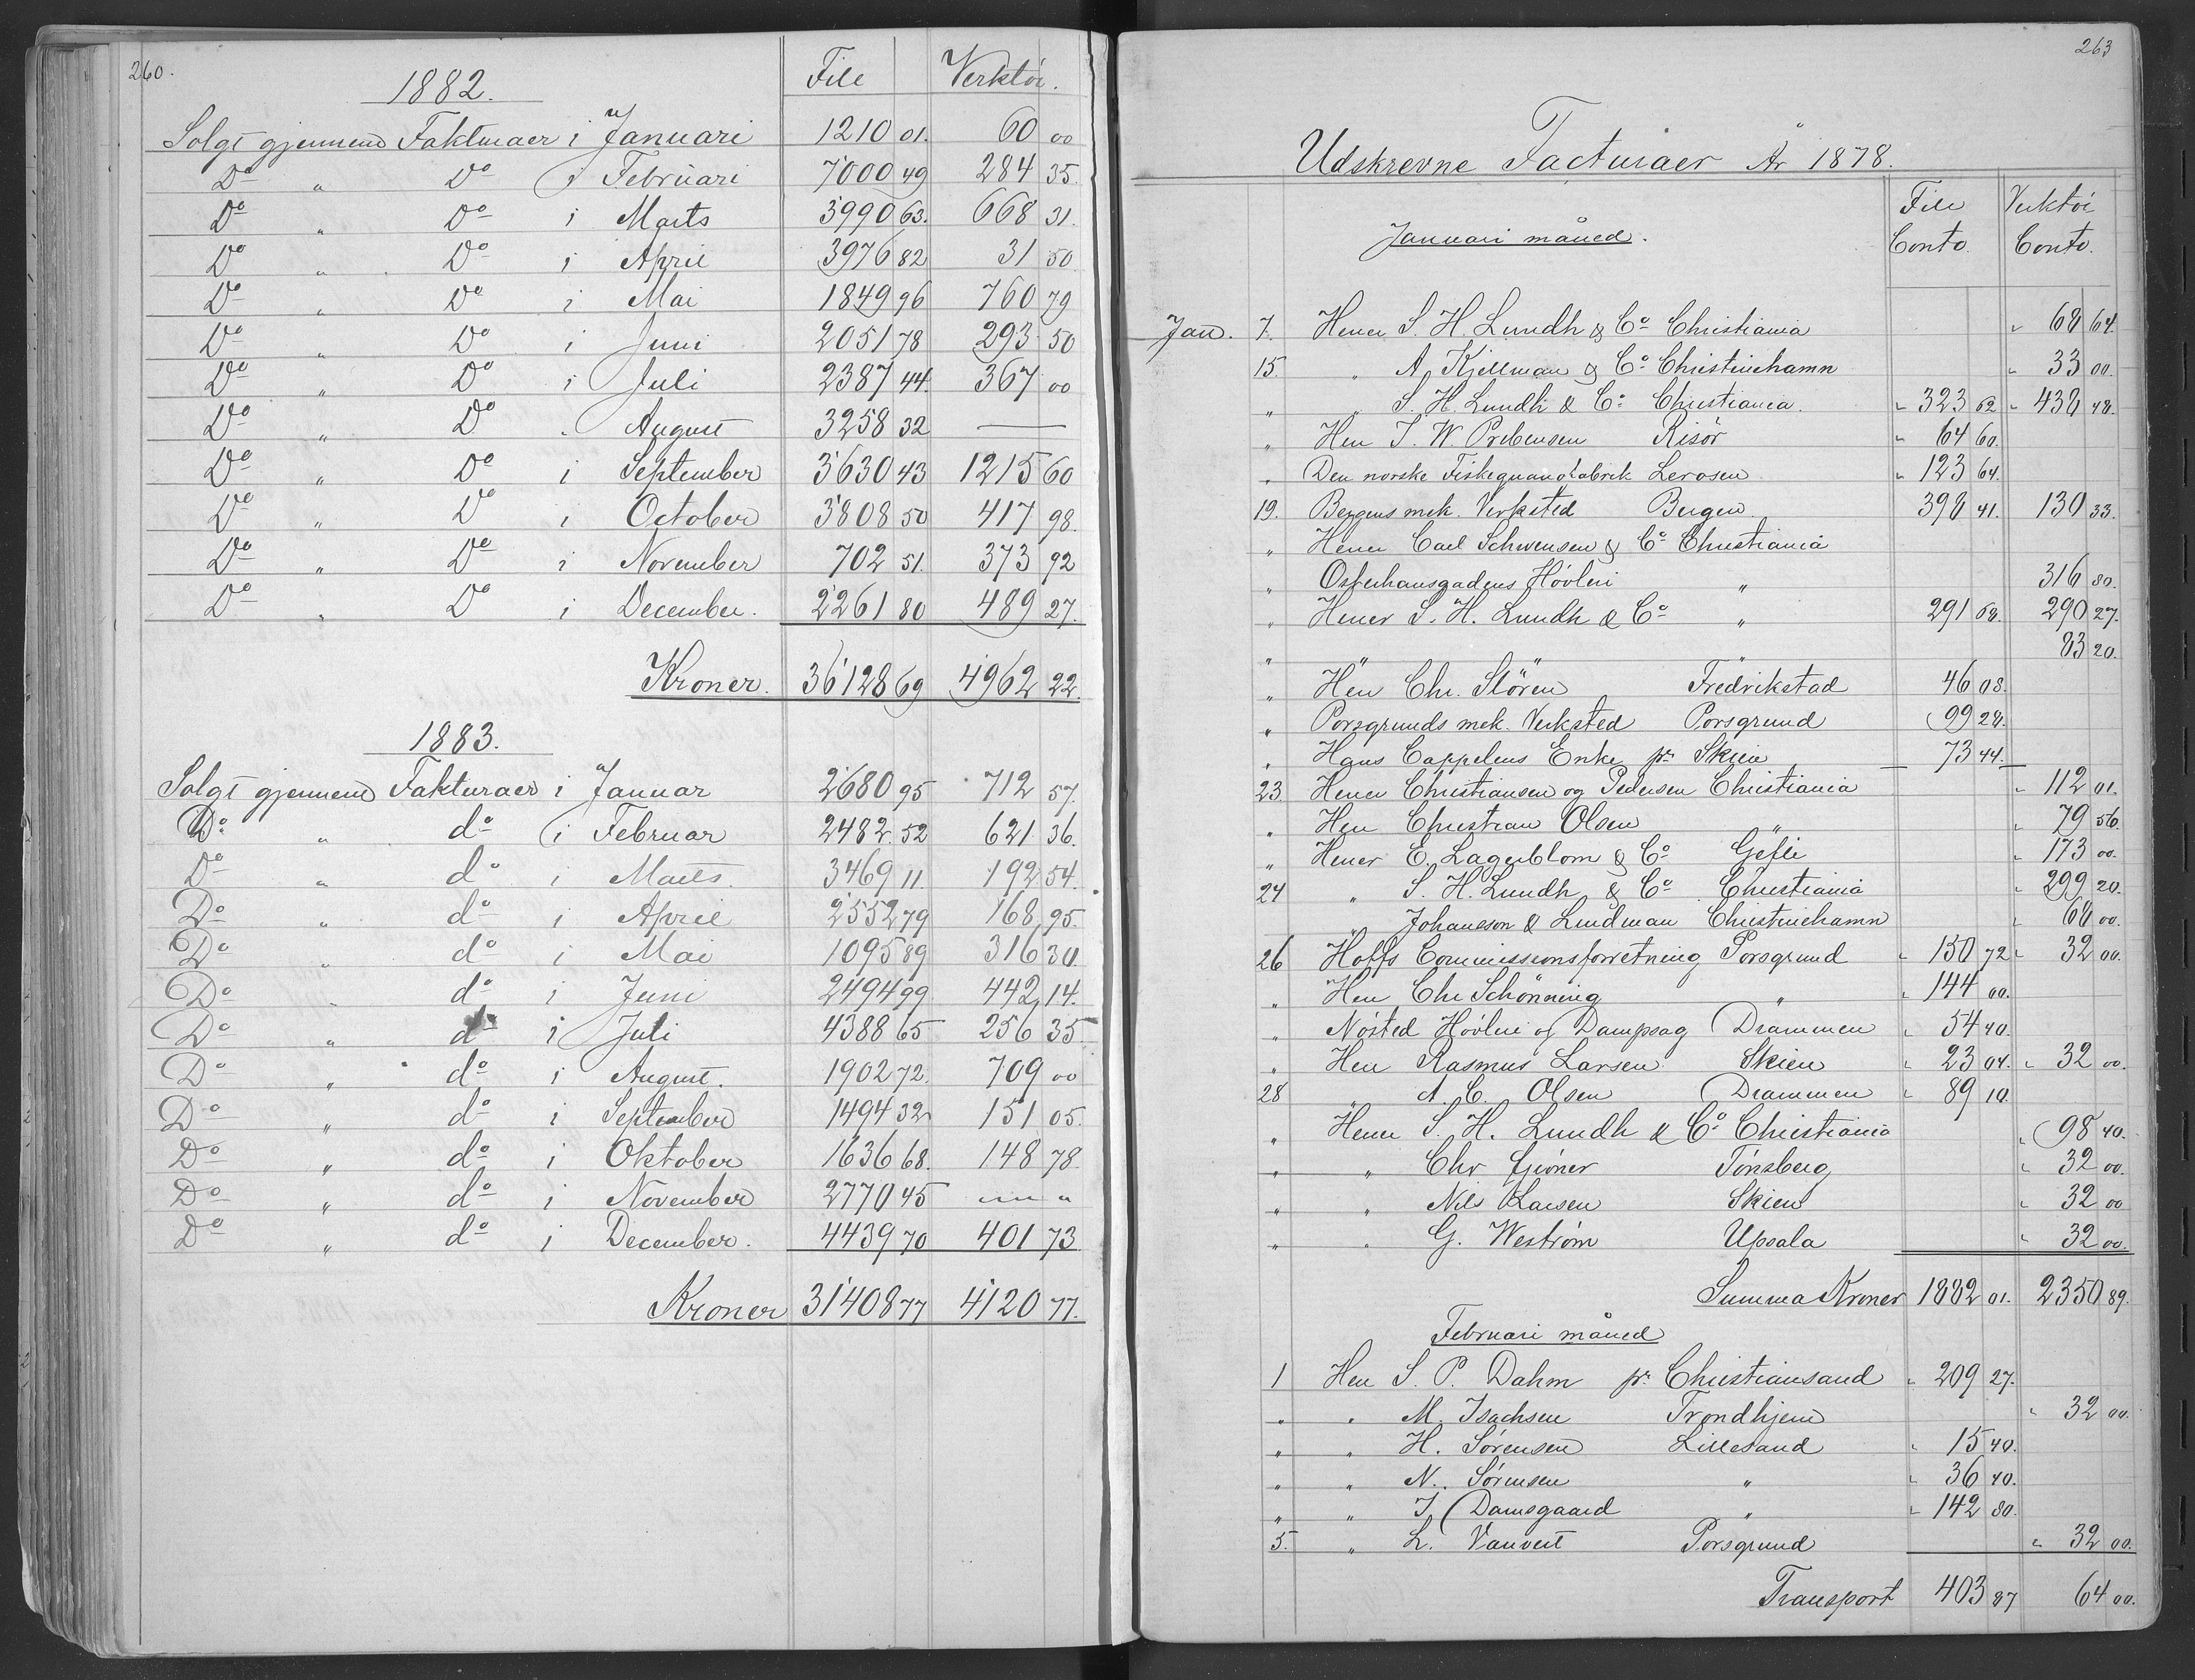 260.
File Verktöi.
1882.
Solgt gjennem Faktuaer i Januari 1210 01. 60 00
Do " Do i Februari 7000 49 284 35.
Do " Do i Marts 3990 63. 668 31.
Do " Do i April 3976 82 31 50
Do " Do i Mai 1849 96 760 79
Do " Do i Juni 2051 78 293 50
Do " Do i Juli 2387 44. 367 00
Do " Do . August 3258 32 —
Do " Do i September 3630 43 1215 60
Do " Do i October 3808 50 417 98.
Do " Do i November 702 51. 373 92
Do " Do i December. 2261 80 489 27.
Kroner. 36128 69 4962 22.
1883.
Solgt gjennem Fakturaer i Januar 2680 95 712 57.
Do " do i Februar 2482. 52 621 36.
Do " do i Marts. 3469 11. 192 54.
Do " do i April 2552 79 168 95.
Do " do i Mai 1095 89 316 30
Do " do i Juni 2494 99 442 14.
Do " do i Juli 4388 65 256 35
Do " do i August. 1902 72. 709 00
Do " do i September 1494 32 151 05.
Do " do i Oktober 1636 68. 148 78.
Do " do i November 2770 45 " "
Do " do i December. 4439 70 401 73
Kroner 31408 77 4120 77.
263
Udskrevne Facturaer År 1878.
File Conto. Verktöi Conto.
Januari måned.
Jan. 7. Herrer S. H. Lundh & Co Christiania " 68 64.
15. " A. Kjellman & Co Christinehamn " 33 00.
" " S. H. Lundh & Co Christiania. " 323 62 " 438 48.
" Herr T. W. Prebensen Risör " 64 60.
" Den norske Fiskeguanofabrik Lerosen " 123 64.
19. Bergens mek. Verksted Bergen. 398 41. 130 33.
" Herrer Carl Schwensen & Co Christiania
" Osterhausgadens Hövleri " 316 80.
" Herrer S. H. Lundh & Co " 291 68. 290 27.
" " " 83 20.
" Herr Chr. Stören Fredrikstad 46 08.
" Porsgrunds mek. Verksted Porsgrund 99 28.
" Hans Cappelens Enke pr Skien 73 44.
23. Herrer Christiansen og Pedersen Christiania " 112 01.
" Herr Christian Olsen " " 79 56.
" Herrer E. Lagerblom & Co Gefle " 173 00.
24 " S. H. Lundh & Co Christiania " 299 20.
" Johanson & Lindman Christinehamn " 68 00.
26 Hoffs Commissionsforretning Porsgrund " 150 72 " 32 00.
" Herr Chr Schönning " " 144 00.
" Nösted Hövleri og Dampsag Drammen " 54 40.
" Herr Rasmus Larsen Skien " 23 04. " 32 00.
28 " A. C. Olsen Drammen " 89 10.
" Herrer S. H. Lundh & Co Christiania " 98 40.
" " Chr Gröner Tönsberg " 32 00.
" " Nils Larsen Skien " 32 00
" " G. Weström Upsala " 32 00.
Summa Kroner 1882 01. 2350 89.
Februari måned
1 Herr S. P. Dahm pr Christiansand " 209 27.
" " M. Isachsen Trondhjem " 32 00.
" " H. Sörensen Lillesand " 15 40.
" " N. Sörensen " " 36 40.
" " J. Damsgaard " " 142 80.
5. " L. Vauvert Porsgrund " 32 00.
Transport 403 87 64 00.